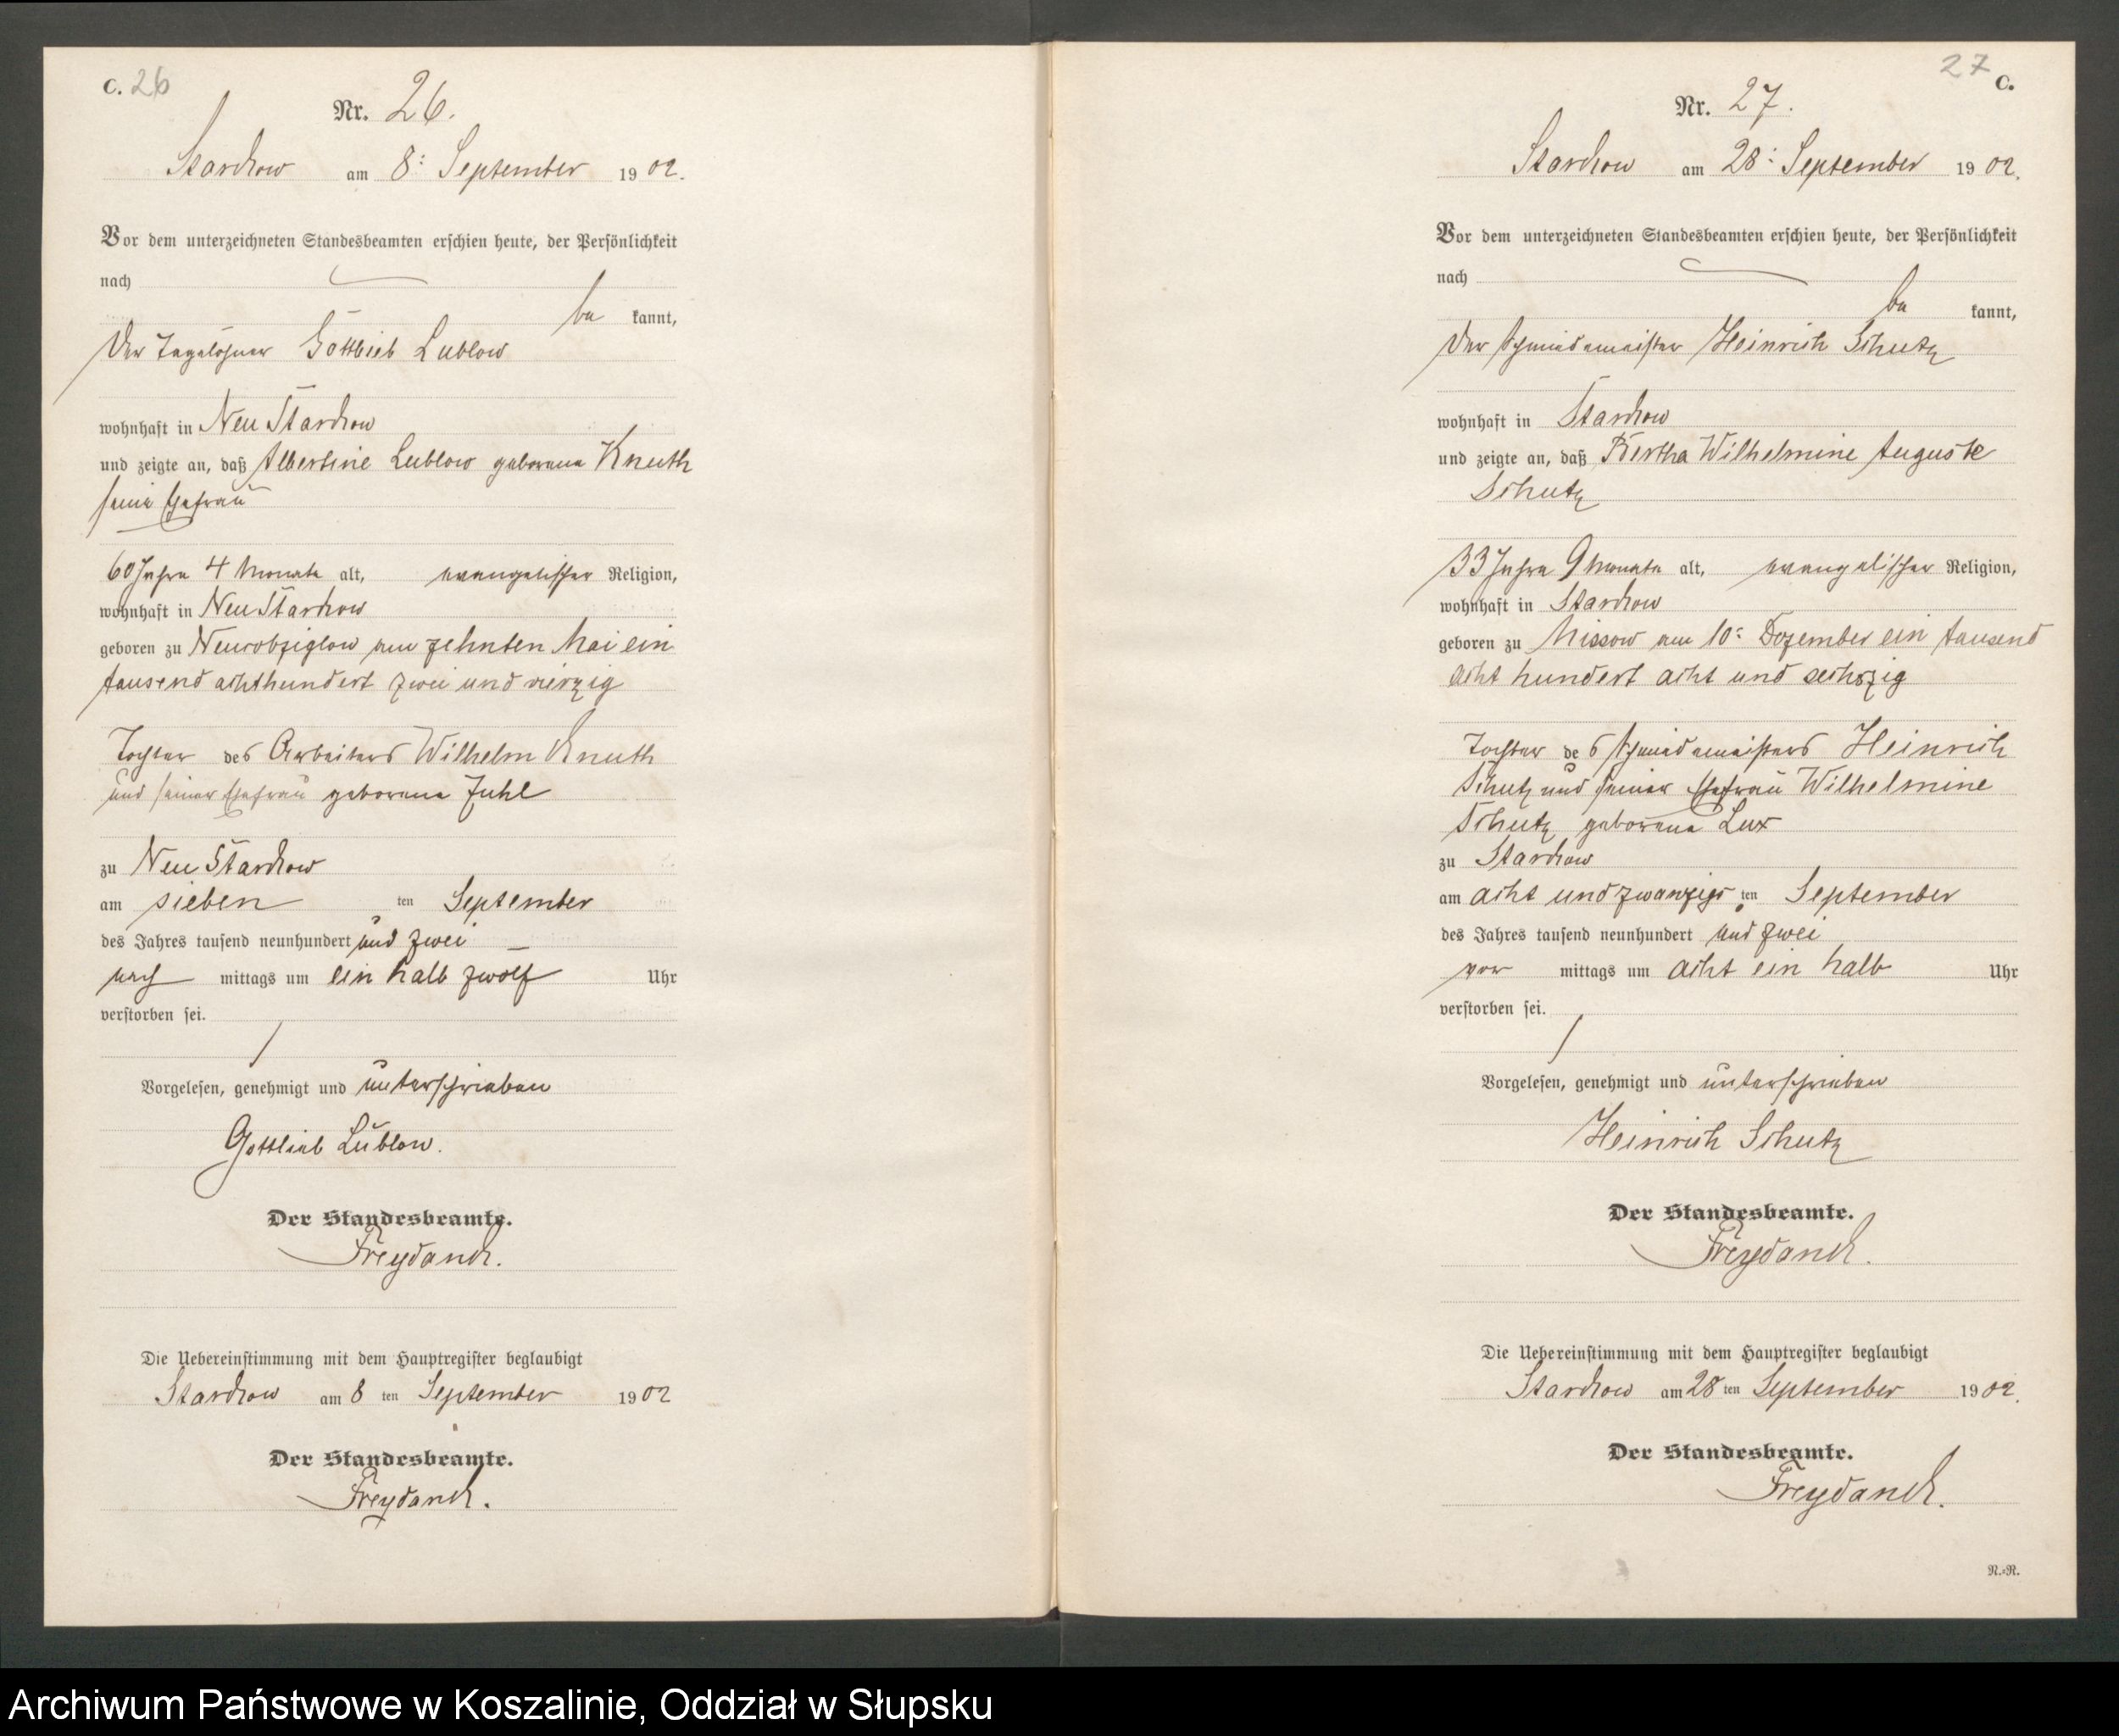 C. 26
Nr. 26.
Starckow am 8: September 1902.
Vor dem unterzeichneten Standesbeamten erschien heute, der Persönlichkeit
nach
be kannt,
Der Tagelöhner Gottlieb Lublow
wohnhaft in Neu Starckow
und zeigte an, daß Albertine Lublow geborene Knuth
seine Ehefrau
60 Jahre 4 Monate alt, evangelischer Religion,
wohnhaft in Neu Starckow
geboren zu am zehnten Mai ein
tausend achthundert zwei und vierzig
Tochter des Arbeiters Wilhelm Knuth
und seiner Ehefrau geborene
zu Neu Starckow
am sieben ten September
des Jahres tausend neunhundert und zwei
nach mittags um ein halb zwolf Uhr
verstorben sei.
Vorgelesen, genehmigt und unterschrieben
Gottlieb Lublow.
Der Standesbeamte.
Freydanck.
Die Uebereinstimmung mit dem Hauptregister beglaubigt
Starckow am 8 ten September 1902
Der Standesbeamte.
Freydanck.
27 C.
Nr. 27.
Starckow am 28: September 1902.
Vor dem unterzeichneten Standesbeamten erschien heute, der Persönlichkeit
nach
be kannt,
Der Schmiedemeister Heinrich Schutz
wohnhaft in Starckow
und zeigte an, daß Bertha Wilhelmine Auguste
Schutz
33 Jahre 9 Monate alt, evangelischer Religion,
wohnhaft in Starckow
geboren zu Missow am 10: Dezember ein tausend
acht hundert acht und sechszig
Tochter des Schmiedemeisters Heinrich
Schutz und seiner Ehefrau Wilhelmine
Schutz geborene Lux
zu Starckow
am acht und zwanzigs ten September
des Jahres tausend neunhundert und zwei
vor mittags um acht ein halb Uhr
verstorben sei.
Vorgelesen, genehmigt und unterschrieben
Heinrich Schutz
Der Standesbeamte.
Freydanck.
Die Uebereinstimmung mit dem Hauptregister beglaubigt
Starckow am 28 ten September 1902.
Der Standesbeamte.
Freydanck.
N.=R.
Archiwum Państwowe w Koszalinie, Oddział w Słupsku